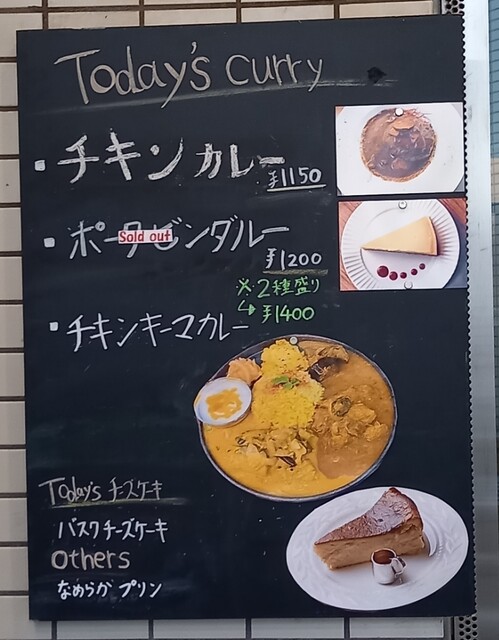 Today's curry
・チキンカレー
¥1150
・ポークビンダルー
Sold out
¥1200
※2種盛り
↳ ¥1400
・チキンキーマカレー
Today's チーズケーキ
バスクチーズケーキ
others
なめらか プリン